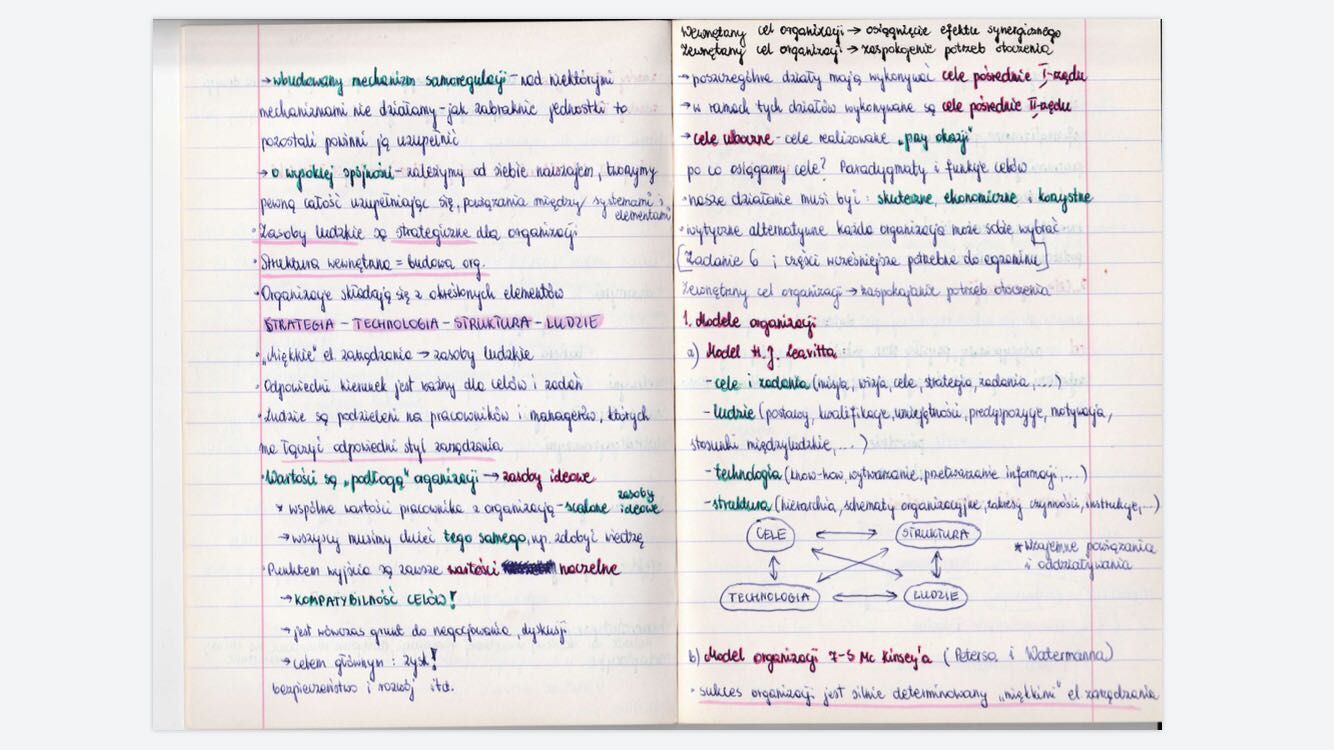 → wbudowany mechanizm samoregulacji - nad niektórymi
mechanizmami nie działamy - jak zabraknie jednostki to
pozostali powinni ją uzupełnić
→ o wysokiej spójności - zależymy od siebie nawzajem, tworzymy
pewną całość uzupełniając się, powiązania między systemami i
elementami
• Zasoby ludzkie są strategiczne dla organizacji
• Struktura wewnętrzna = budowa org.
• Organizacje składają się z określonych elementów
STRATEGIA - TECHNOLOGIA - STRUKTURA - LUDZIE
• „miękkie" el. zarządzania → zasoby ludzkie
• Odpowiedni kierunek jest ważny dla celów i zadań
• Ludzie są podzieleni na pracowników i managerów, których
ma łączyć odpowiedni styl zarządzania
• Wartości są „podłogą" organizacji → zasoby ideowe
* wspólne wartości pracownika z organizacją - scalone zasoby ideowe
→ wszyscy musimy chcieć tego samego, np. zdobyć wiedzę
• Punktem wyjścia są zawsze wartości naczelne
→ KOMPATYBILNOŚĆ CELÓW!
→ jest wówczas grunt do negocjowania, dyskusji
→ celem głównym : zysk!
bezpieczeństwo i rozwój itd.
Wewnętrzny cel organizacji → osiągnięcie efektu synergicznego
Zewnętrzny cel organizacji → zaspokojenie potrzeb otoczenia
→ poszczególne działy mają wykonywać cele pośrednie I-rzędu
→ w ramach tych działów wykonywane są cele pośrednie II-rzędu
→ cele uboczne - cele realizowane „przy okazji"
po co osiągamy cele? Paradygmaty i funkcje celów
• nasze działanie musi być : skuteczne, ekonomiczne i korzystne
• wytyczne alternatywne każda organizacja może sobie wybrać
[Zadanie 6 i części wcześniejsze potrzebne do egzaminu]
Zewnętrzny cel organizacji → zaspokajanie potrzeb otoczenia
1. Modele organizacji
a) Model H.J. Leavitta
- cele i zadania (misja, wizja, cele, strategia, zadania, ...)
- ludzie (postawy, kwalifikacje, umiejętności, predyspozycje, motywacja,
stosunki międzyludzkie, ... )
- technologia (know-how, wytwarzanie, przetwarzanie informacji, ...)
- struktura (hierarchia, schematy organizacyjne, zakresy czynności, instrukcje, ...)
CELE ↔ STRUKTURA
* Wzajemne powiązania
i oddziaływania
TECHNOLOGIA ↔ LUDZIE
b) Model organizacji 7-S Mc Kinsey'a ( Petersa i Watermanna)
• sukces organizacji jest silnie determinowany „miękkimi" el. zarządzania